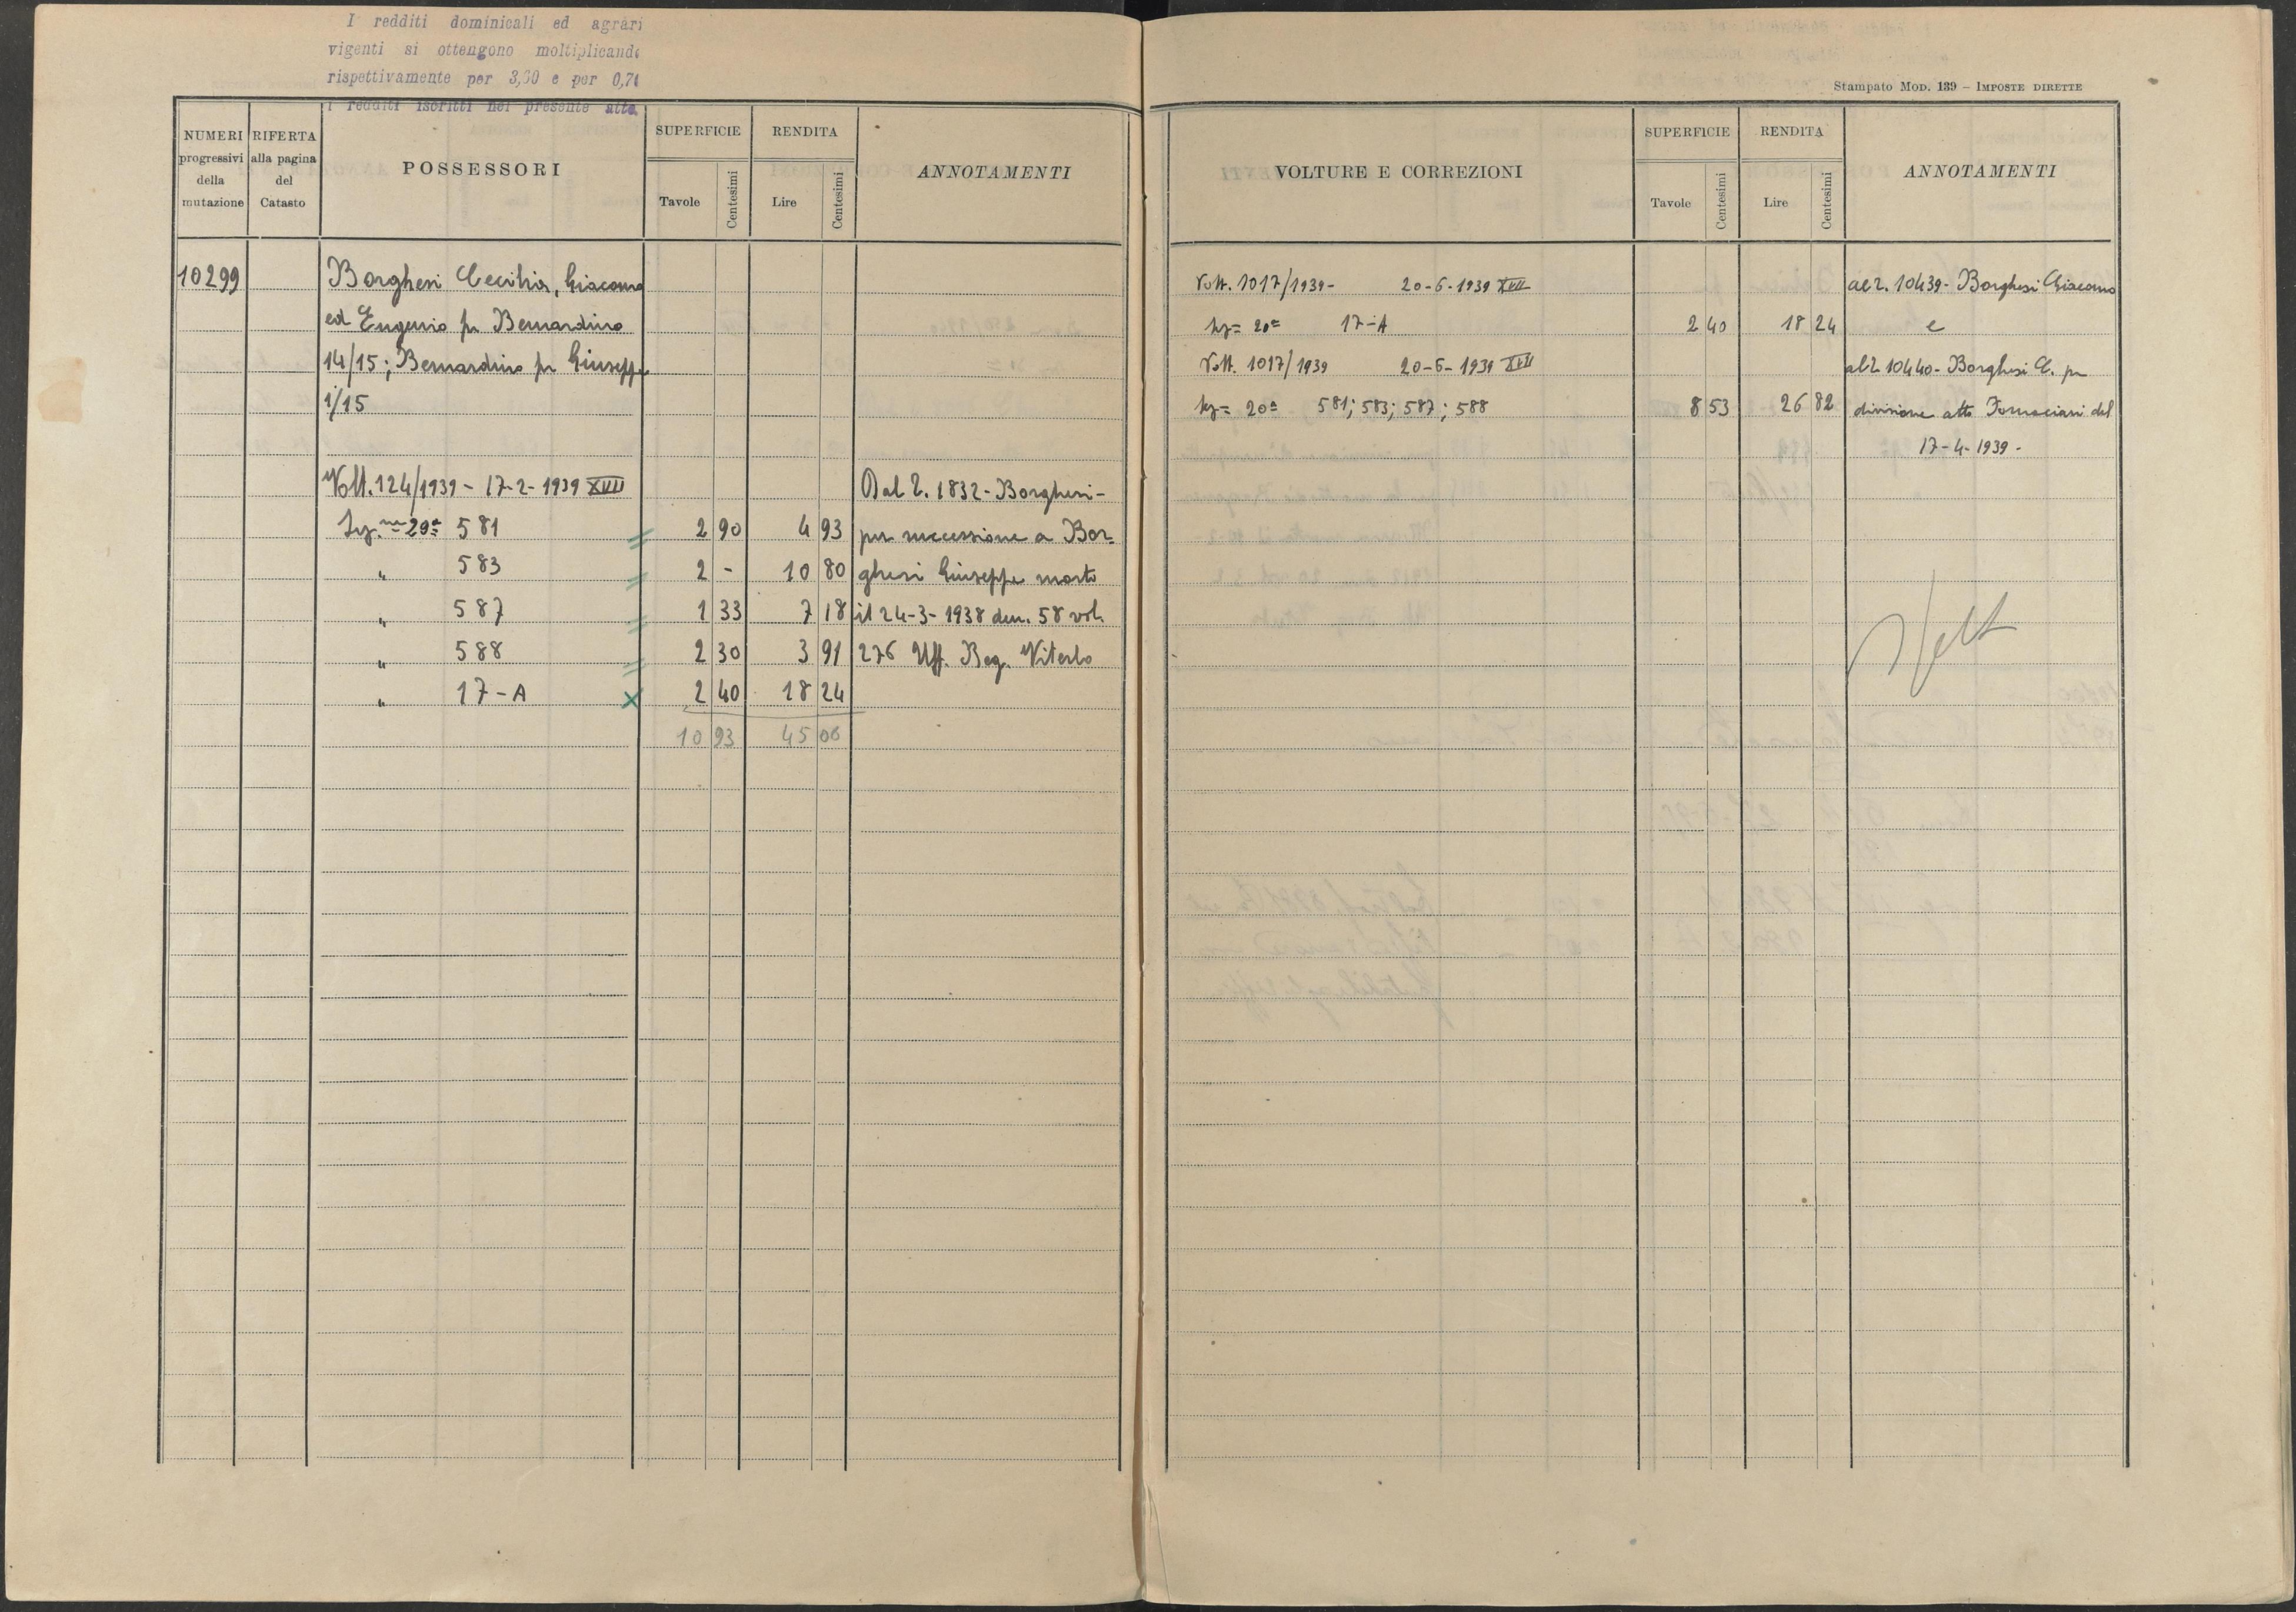 I redditi dominicali ed agrari
vigenti si ottengono moltiplicando
rispettivamente per 3,30 e per 0,7
i redditi iscritti nel presente atto.
NUMERI progressivi della mutazione
RIFERTA alla pagina del Catasto
POSSESSORI
SUPERFICIE
Tavole
Centesimi
RENDITA
Lire
Centesimi
ANNOTAMENTI
10299
Borghesi Cecilia, Giacomo
ed Eugenio fu Bernardino
14/15; Bernardino fu Giuseppe
1/15
Volt. 124/1939 - 17-2-1939 XVII
581 2 90 4 93
" 583 2 - 10 80
" 587 1 33 7 18
" 588 2 30 3 91
" 17-A 2 40 18 24
10 93 45 06
Dal 2. 1832 - Borghesi -
per successione a Bor-
ghesi Giuseppe morto
il 24-3-1938 den. 58 vol.
276 Uff. Reg. Viterbo
Stampato MOD. 139 - IMPOSTE DIRETTE
VOLTURE E CORREZIONI
SUPERFICIE
Tavole
Centesimi
RENDITA
Lire
Centesimi
ANNOTAMENTI
Volt. 1017/1939 - 20-6-1939 XVII al 2. 10439 - Borghesi Giacomo
20ª 17-A 2 40 18 24 e
Volt. 1017/1939 20-6-1939 XVII al 2 10440 - Borghesi E. per
20ª 581; 583; 587; 588 8 53 26 82 divisione atto Fornaciari del
17-4-1939 -